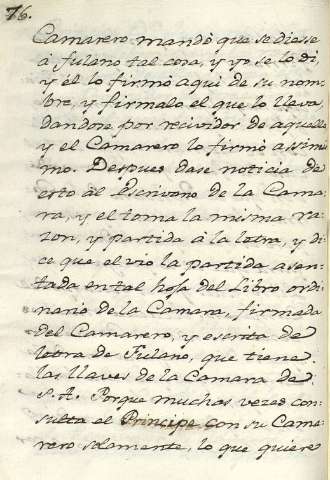 76.
Camarero mandó que se diesse
à fulano tal cosa, y yo se lo di,
y él lo firmò aqui de su nom-
bre, y firmado el que lo lleva
dandose por recividor de aquello
y el Camarero lo firmò assimis
mo. Despues dase noticia de
esto al Escrivano de la Cama-
ra, y el toma la misma ra-
zon, y partida à la letra, y di-
ce que el vio la partida asen-
tada en tal hoja del Libro ordi-
nario de la Camara, firmada
del Camarero, y escrita de
letra de Fulano, que tiene
las llaves de la Camara de
S. A. Porque muchas vezes con-
sulta el Principe con su Cama-
rero solamente, lo que quiere